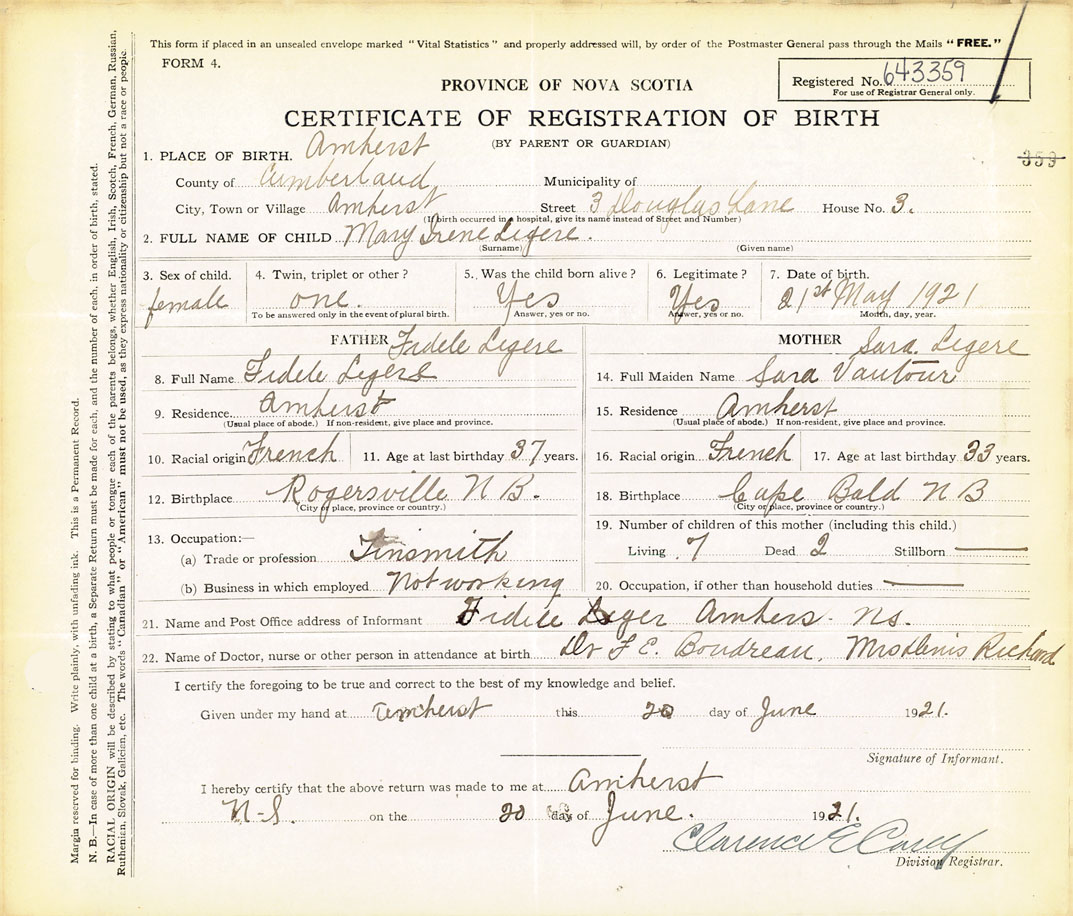 This form if placed in an unsealed envelope marked "Vital Statistics" and properly addressed will, by order of the Postmaster General pass through the Mails "FREE."
FORM 4.
Registered No. 643359
For use of Registrar General only.
PROVINCE OF NOVA SCOTIA
CERTIFICATE OF REGISTRATION OF BIRTH
(BY PARENT OR GUARDIAN)
359
1. PLACE OF BIRTH. Amherst
County of Cumberland Municipality of
City, Town or Village Amherst Street 3 Douglas Lane House No. 3.
(If birth occurred in a hospital, give its name instead of Street and Number)
2. FULL NAME OF CHILD Mary Irene Legere.
(Surname) (Given name)
3. Sex of child. 4. Twin, triplet or other? 5. Was the child born alive? 6. Legitimate? 7. Date of birth.
female one. Yes Yes 21st May 1921
To be answered only in the event of plural birth. Answer, yes or no. Answer, yes or no. Month, day, year.
FATHER Fidele Legere
8. Full Name Fidele Legere
9. Residence Amherst
(Usual place of abode.) If non-resident, give place and province.
10. Racial origin French 11. Age at last birthday 37 years.
12. Birthplace Rogersville N B.
(City or place, province or country.)
13. Occupation:—
(a) Trade or profession Tinsmith
(b) Business in which employed Not working
MOTHER Sara Legere
14. Full Maiden Name Sara Vautour
15. Residence Amherst
(Usual place of abode.) If non-resident, give place and province.
16. Racial origin French 17. Age at last birthday 33 years.
18. Birthplace Cape Bald N B
(City or place, province or country.)
19. Number of children of this mother (including this child.)
Living 7 Dead 2 Stillborn
20. Occupation, if other than household duties
21. Name and Post Office address of Informant Fidele Leger Amhers. Ns.
22. Name of Doctor, nurse or other person in attendance at birth Dr F E. Boudreau, Mrs Denis Richard
I certify the foregoing to be true and correct to the best of my knowledge and belief.
Given under my hand at Amherst this 20 day of June 1921.
Signature of Informant.
I hereby certify that the above return was made to me at Amherst
N-S. on the 20 day of June. 1921.
Clarence E Casey
Division Registrar.
Margin reserved for binding. Write plainly, with unfading ink. This is a Permanent Record.
N. B.—In case of more than one child at a birth, a Separate Return must be made for each, and the number of each, in order of birth, stated.
RACIAL ORIGIN will be described by stating to what people or tongue each of the parents belongs, whether English, Irish, Scotch, French, German, Russian,
Ruthenian, Slovak, Galician, etc. The words "Canadian" or "American" must not be used, as they express nationality or citizenship but not a race or people.